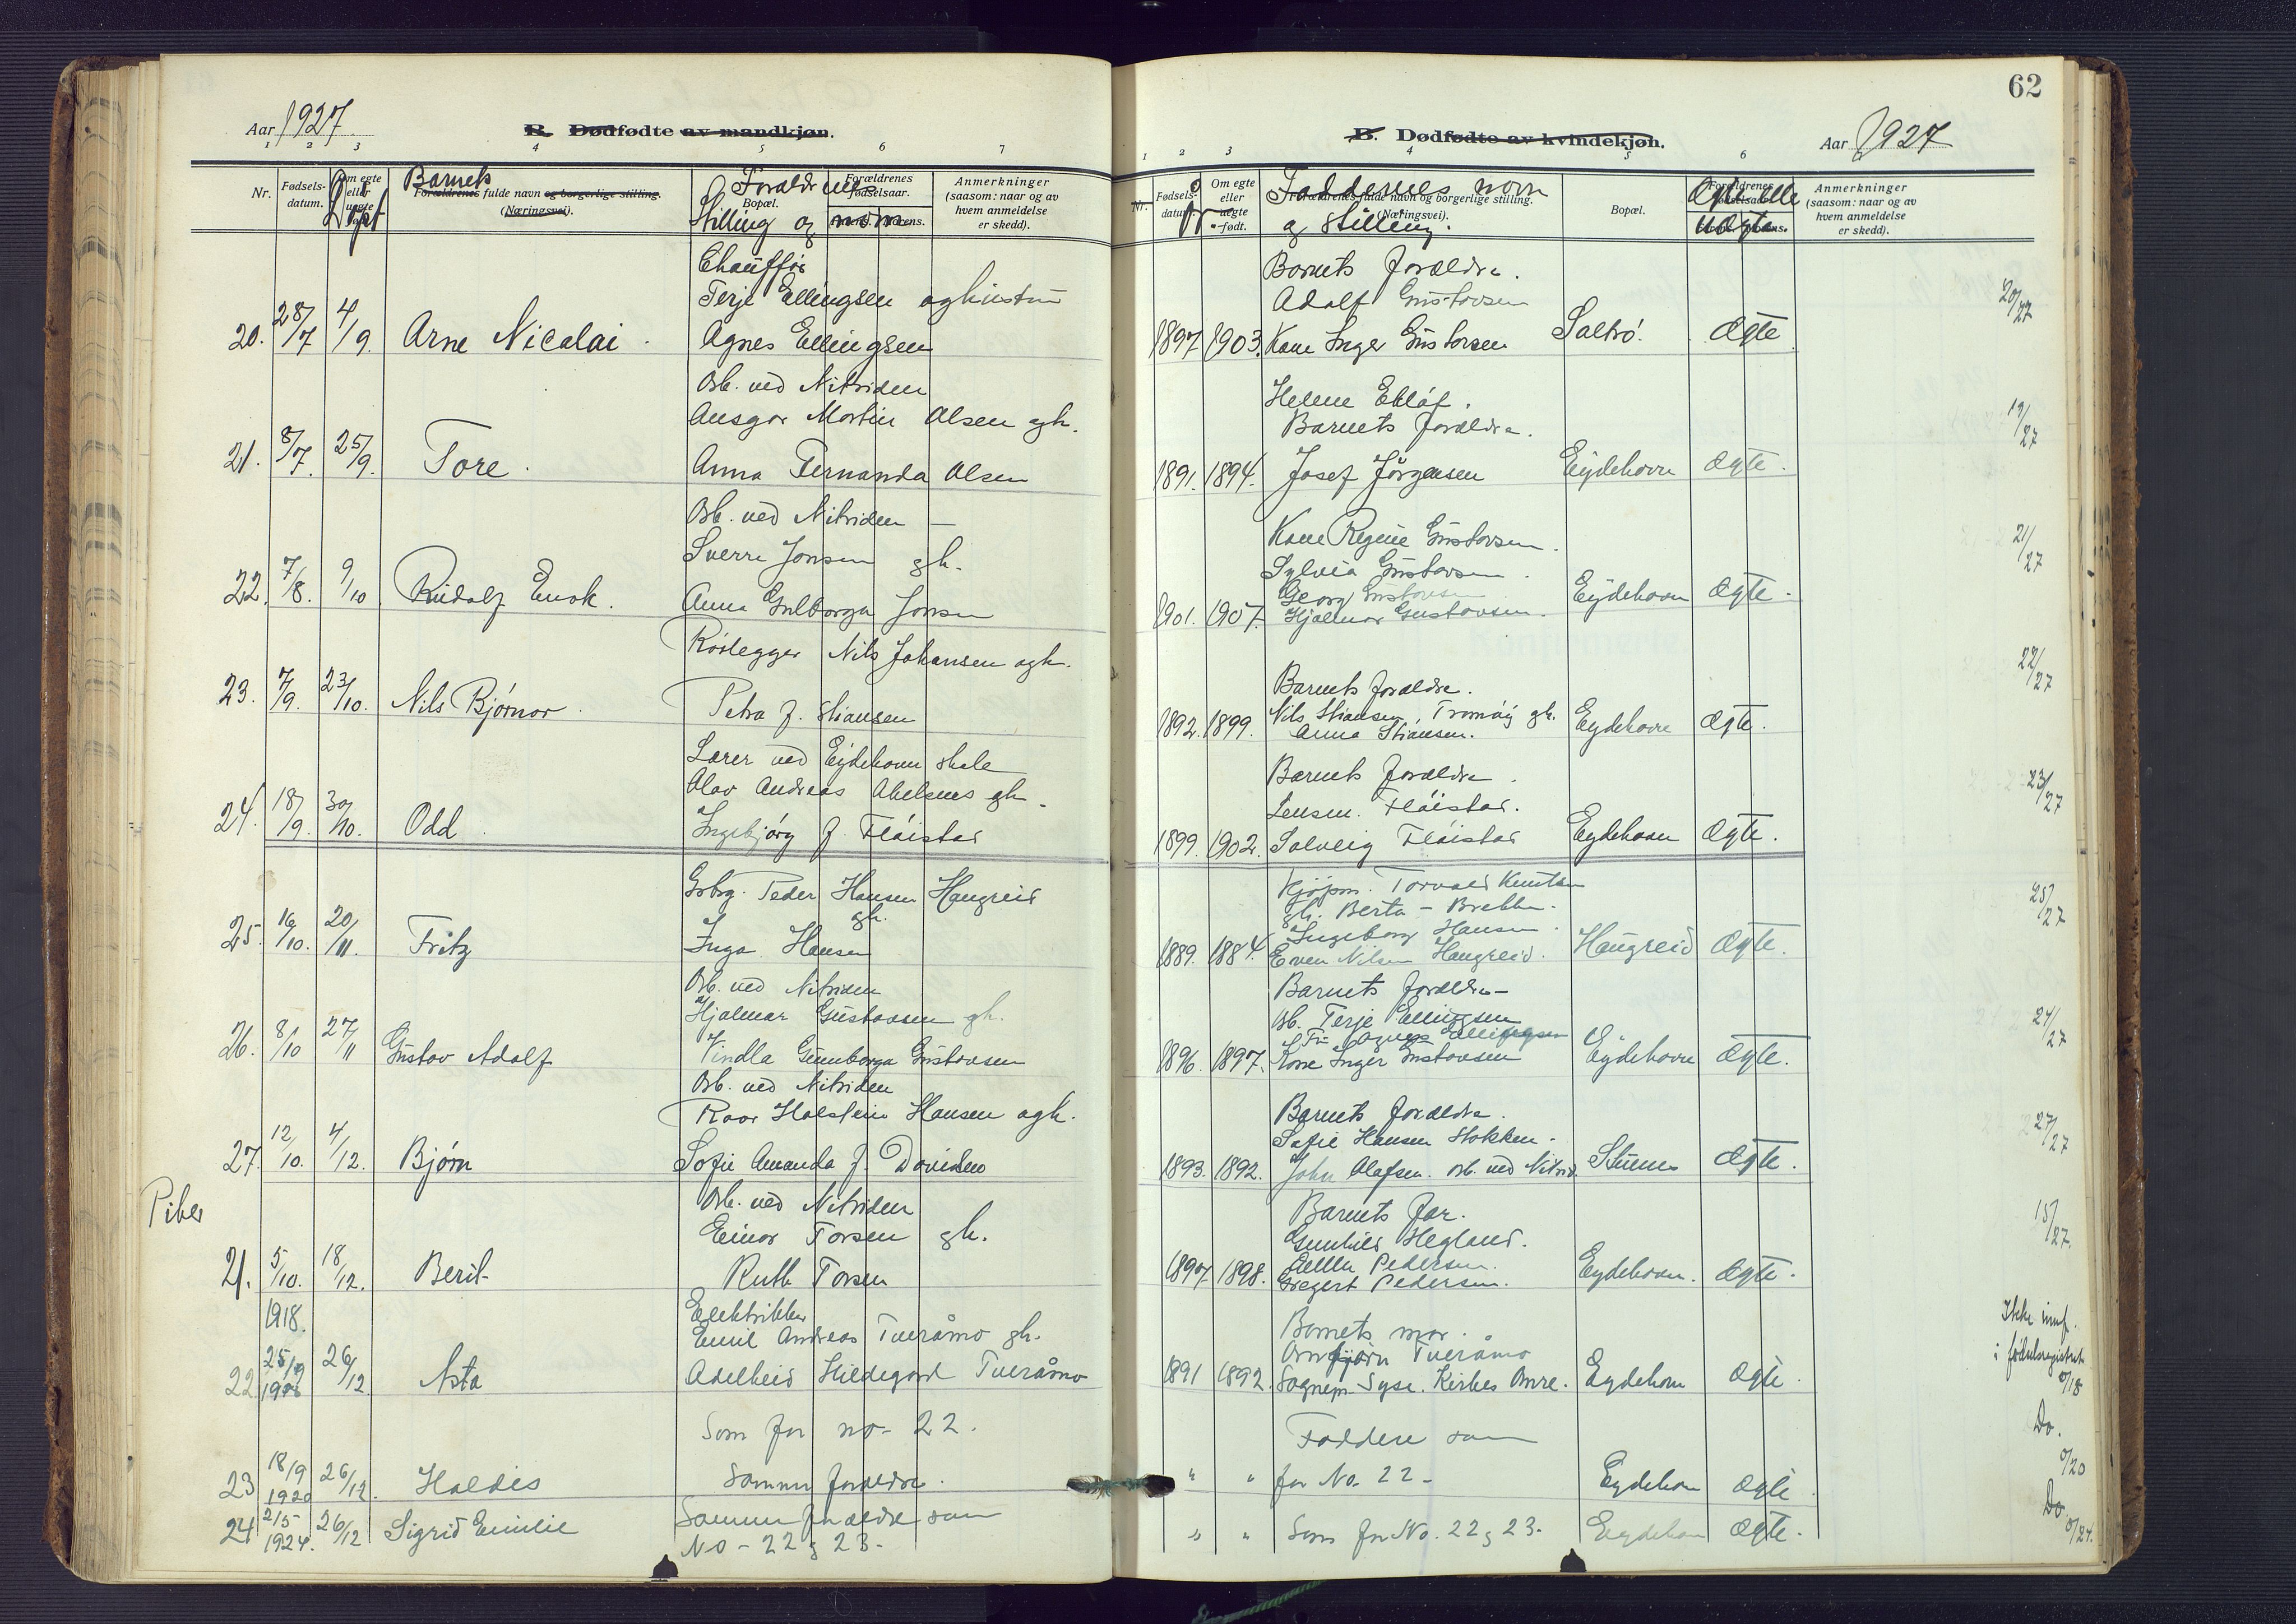 62
Aar 1927
B. Dødfødte av mandkjøn.
1 2 3 4 5 6 7
Nr.
Fødsels-datum.
Om egte eller uegte født.
Døpt
Barnets
Forældrenes fulde navn og borgerlige stilling.
(Næringsvei).
Forældrenes
Bopæl.
Stilling og navn
Forældrenes fødselsaar.
Anmerkninger
(saasom: naar og av
hvem anmeldelse
er skedd).
Chauffør
Terje Ellingsen og hustru
20. 28/7 4/9. Arne Nicolai. Agnes Ellingsen
Arb. ved Nitriden
Ansgar Martin Olsen gh.
21. 8/7. 25/9. Tore. Anna Fernanda Olsen
Arb. ved Nitriden
Sverre Jonsen gh.
22. 7/8. 9/10. Rudolf Enok. Anna Gulborga Jonsen
Rørlegger Nils Johansen gh.
23. 7/9. 23/10. Nils Bjørnar. Petra f. Stiansen
Lærer ved Eydehavn skole
Olav Andreas Abelsnes gh.
24. 18/9. 30/10. Odd. Ingebjørg f. Fløistad
Grbrg. Peder Hansen Haugreid
gh.
25. 16/10. 20/11. Fritz Inga Hansen
Arb. ved Nitriden
Hjalmar Gustavsen gh.
26. 8/10 27/11 Gustav Adolf Vindla Gunborga Gustavsen
Arb. ved Nitriden
Roar Holstein Hansen gh.
27. 12/10. 4/12. Bjørn Sofie Amanda f. Davidsen
Piker
Arb. ved Nitriden
Einar Torsen gh.
21. 5/10. 18/12. Berit Ruth Torsen
1918.
Elektriker
Emil Andreas Tveråmo gh.
22 25/9 26/12 Asta Adelheid Hildegard Tveråmo
Som for no 22.
23 18/9 1920 26/12. Haldis Samme forældre.
24 21/5 1924. 26/12 Sigrid Emilie Samme forældre som
No - 22 & 23.
B. Dødfødte av kvindekjøn.
Aar 1927
1 2 3 4 5 6
Nr.
Fødsels-datum.
Om egte eller uegte født.
Faddernes navn
Forældrenes fulde navn og borgerlige stilling.
(Næringsvei).
og Stilling.
Bopæl.
Forældrenes fødselsaar.
Ægte eller
Uægte.
Anmerkninger
(saasom: naar og av
hvem anmeldelse
er skedd).
Barnets forældre.
Adolf Gustavsen
1897 1903. Kare Inger Gustavsen Saltrø. Ægte 20/27
Helene Eklöf.
Barnets forældre.
1891. 1894. Josef Jörgensen Eydehavn Ægte. 19/27
Kare Regine Gustavsen.
Sylvia Gustavsen.
Georg Gustavsen
1901. 1907. Hjalmar Gustavsen. Eydehavn Ægte. 21/27
Barnets forældre.
Nils Stiansen, Tromøy gh.
1892. 1899. Anna Stiansen. Eydehavn Ægte. 22/27
Barnets forældre.
Jensen. Fløistad.
1899. 1902. Solveig Fløistad Eydehavn Ægte. 23/27
Kjøpm. Torvald Knutsen
gh. Berta - Brekka.
Ingeborg Hansen.
1889. 1884. Even Nilsen Haugreid. Haugreid Ægte. 25/27
Barnets forældre
Arb. Terje Ellingsen
Fru Agnes Ellingsen
1896. 1897. Kare Inger Gustavsen Eydehavn Ægte. 24/27
Barnets forældre.
Sofie Hansen Stokken.
1893. 1892. John Olafsen. arb. ved Nitrid. Stuenes Ægte. 27/27
Barnets far.
Gunhild Hegland.
Pedersen.
1897 1898. Gregert Pedersen. Eydehavn. Ægte. 15/27.
Barnets mor.
Arnbjørn Tveråmo
1891 1892. Sognepr. Kirkes Eydehavn Ægte.
Ikke innf.
i fødselsregistret
0/18
Faddere som
" " for No. 22 - Eydehavn Ægte Do. 0/20
" " Som for No. 22 & 23. Eydehavn Ægte. Do. 0/24.